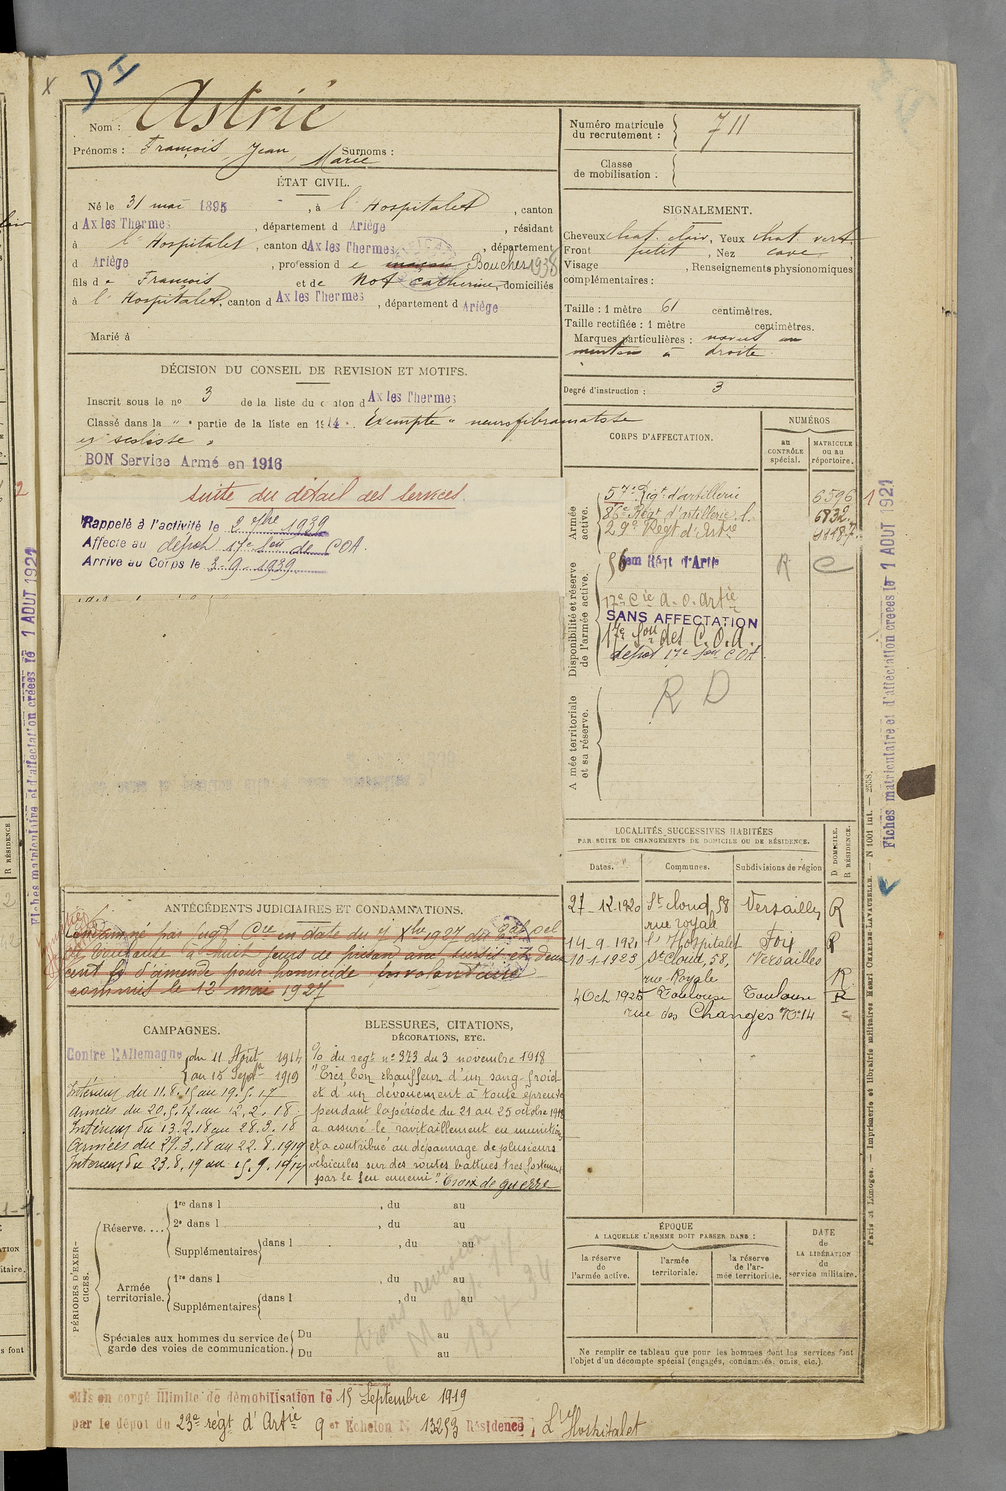 X
D I
Nom : Astrié
Prénoms : François, Jean, Marie Surnoms :
Numéro matricule du recrutement : 711
Classe de mobilisation :
ÉTAT CIVIL.
Né le 31 mai 1895, à l'Hospitalet, canton
d Ax les Thermes, département d Ariège, résidant
à l'Hospitalet, canton d Ax les Thermes, département
d Ariège, profession de maçon Boucher 1938
fils de François et de Not Catherine, domiciliés
à l'Hospitalet, canton d Ax les Thermes, département d Ariège
Marié à
SIGNALEMENT.
Cheveux chat. clair, Yeux chat. vert
Front petit, Nez cave
Visage , Renseignements physionomiques
complémentaires :
Taille : 1 mètre 61 centimètres.
Taille rectifiée : 1 mètre centimètres.
Marques particulières : naevus au
menton à droite
Degré d'instruction : 3
DÉCISION DU CONSEIL DE REVISION ET MOTIFS.
Inscrit sous le nº 3 de la liste du canton d Ax les Thermes
Classé dans la " " partie de la liste en 1914. Exempté " neurofibromatose
et scoliose "
BON Service Armé en 1916
suite du détail des services.
Rappelé à l'activité le 2 7bre 1939
Affecté au dépôt 17e Son de COA.
Arrivé au Corps le 3-9-1939
CORPS D'AFFECTATION.
NUMÉROS
au CONTRÔLE spécial.
MATRICULE ou au répertoire.
Armée active.
57e Rigt d'artillerie 6596
86e Régt d'artillerie l. 6832
29e Régt d'Artie
Disponibilité et réserve de l'armée active.
56eme Régt d'Artie R C
17e Cie d. o. artie
SANS AFFECTATION
17e Son des C.O.A.
dépôt 17e Son COA
Armée territoriale et sa réserve.
R D
LOCALITÉS SUCCESSIVES HABITÉES
PAR SUITE DE CHANGEMENTS DE DOMICILE OU DE RÉSIDENCE.
Dates. Communes. Subdivisions de région D DOMICILE. R RÉSIDENCE.
27-12-1920 St Cloud, 58 Versailles R
rue royale
14-9-1921 L'Hospitalet Foix R
10-1-1923 St Cloud, 58, Versailles
rue Royale R
4 Oct 1925 Toulouse Toulouse R
rue des Changes No 14
ANTÉCÉDENTS JUDICIAIRES ET CONDAMNATIONS.
Condamné par jugt Cel en date du 7 Xbre 1927 du Bal Cel
de Toulouse à huit jours de prison avec sursis et deux
cent f d'amende pour homicide involontaire
commis le 12 mai 1927
CAMPAGNES.
Contre l'Allemagne du 11 Août 1914
au 15 Septbre 1919
Intérieur du 11.8.15 au 19.5.17
Armées du 20.5.17 au 12.2.18
Intérieur du 13.2.18 au 28.3.18
Armées du 29.3.18 au 22.8.1919
Intérieur du 23.8.19 au 15.9.1919
BLESSURES, CITATIONS,
DÉCORATIONS, ETC.
% du régt nº 373 du 3 novembre 1918
"Très bon chauffeur d'un sang-froid
et d'un dévouement à toute épreuve
pendant la période du 21 au 25 octobre 1918
a assuré le ravitaillement en munitions
et a contribué au dépannage de plusieurs
véhicules sur des routes battues très fortement
par le feu ennemi". Croix de guerre
PÉRIODES D'EXERCICES.
Réserve.... 1re dans l , du au
2e dans l , du au
Supplémentaires dans l , du au
Armée territoriale. 1re dans l , du au
Supplémentaires dans l , du au
Spéciales aux hommes du service de garde des voies de communication. Du au
Du au
ÉPOQUE
A LAQUELLE L'HOMME DOIT PASSER DANS :
la réserve de l'armée active.
l'armée territoriale.
la réserve de l'armée territoriale.
DATE de LA LIBÉRATION du service militaire.
Ne remplir ce tableau que pour les hommes dont les services font
l'objet d'un décompte spécial (engagés, condamnés, omis, etc.).
Mis en congé illimité de démobilisation le 15 Septembre 1919
par le dépôt du 23e régt d'Artie 9 et Echelon N 13253 Résidence L'Hospitalet
Fiches matriculaire et d'affectation créées le 1 AOUT 1921
Fiches matriculaire et d'affectation créées le 1 AOUT 1921
Paris et Limoges. — Imprimerie et librairie militaires Henri CHARLES-LAVAUZELLE. — N 1001 int. — 2558.